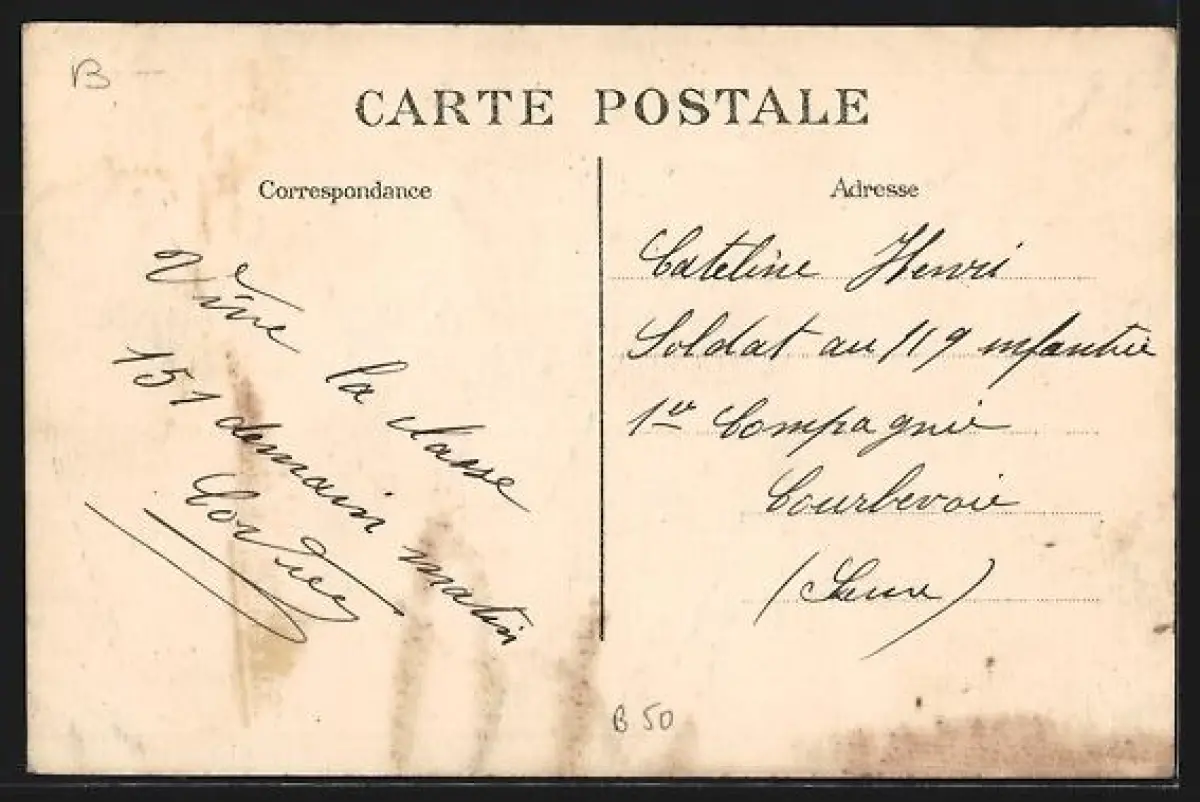 B
CARTE POSTALE
Correspondance
Vive la classe
151 demain matin
Adresse
Cateline Henri
Soldat au 119 infanterie
1re Compagnie
Courbevoie
(Seine)
B 50